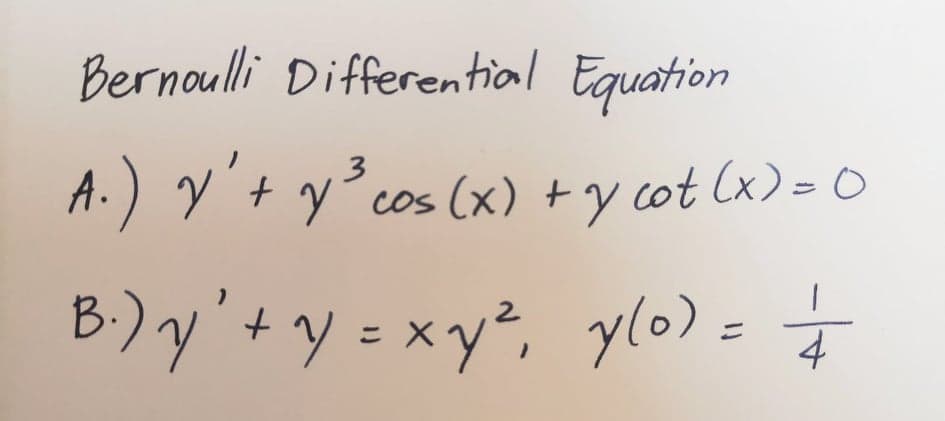 Bernoulli Differential Equation
A.) y' + y³ cos (x) + y cot (x) = 0
B.) y' + y = xy², y(0) = 1/4